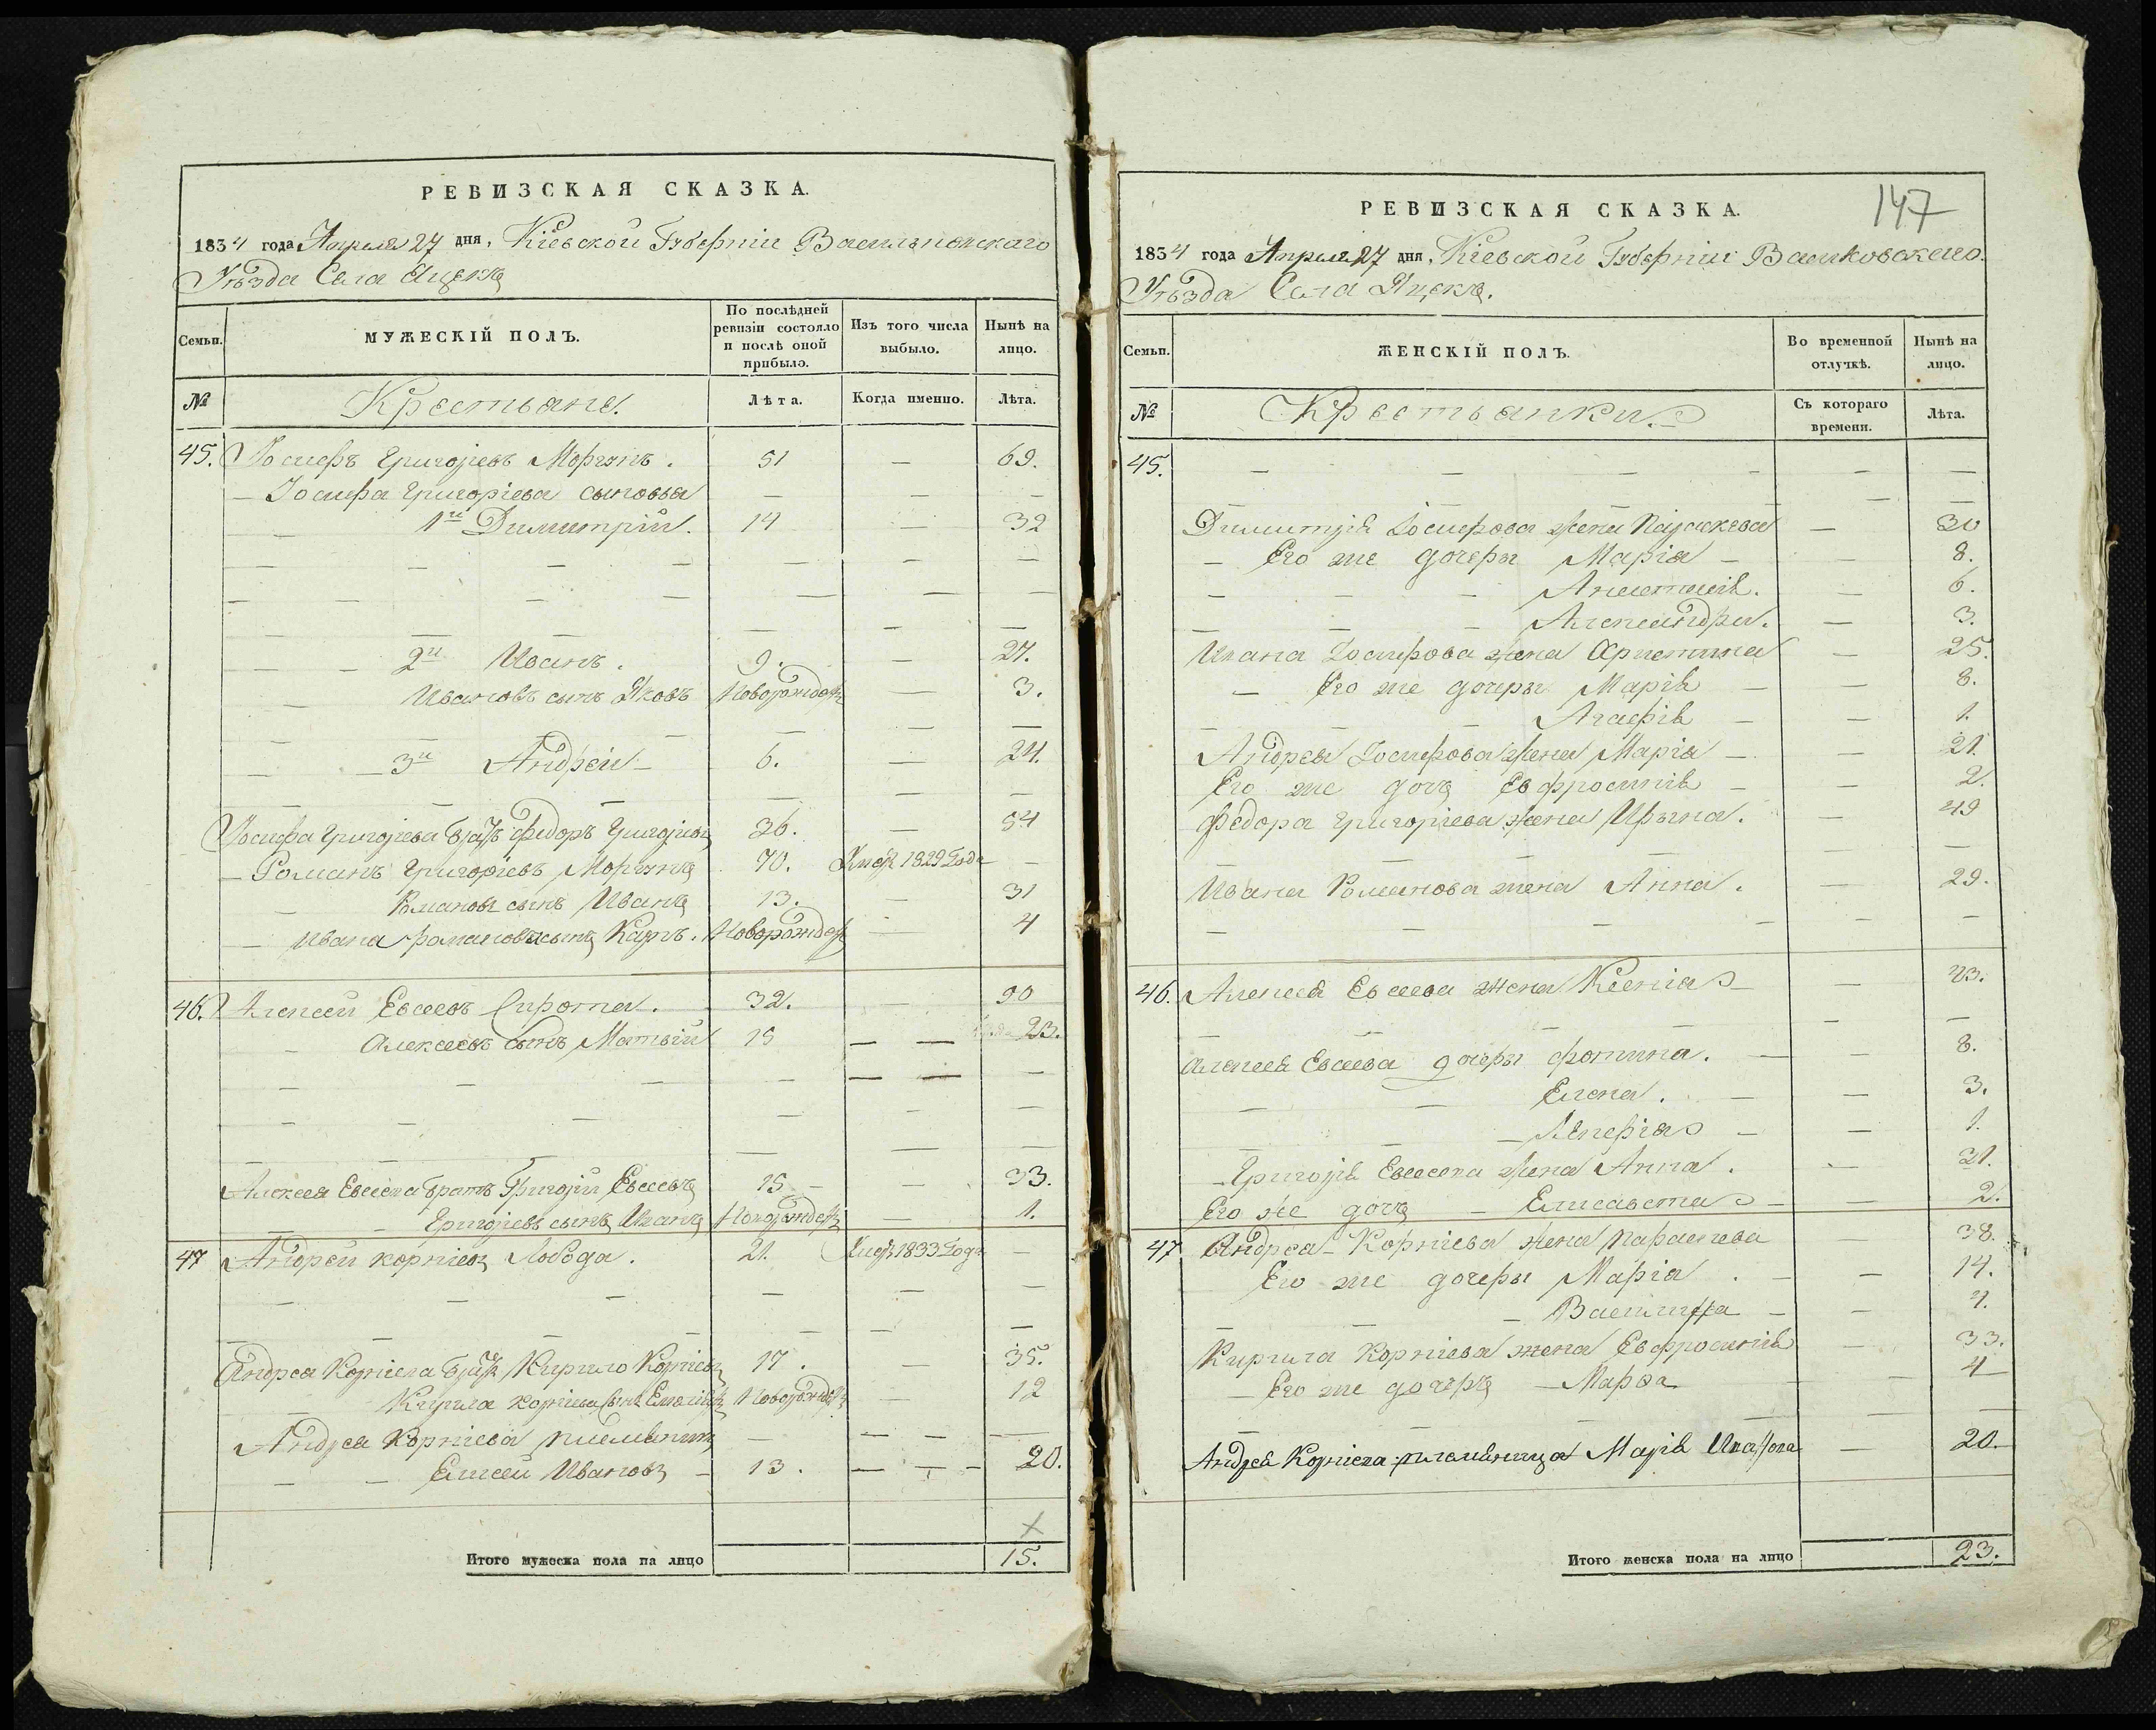 РЕВИЗСКАЯ СКАЗКА.
1834 года Апреля 27 дня, Кіевской Губерніи Васильковскаго
Уѣзда Села Яцекъ
Семьи.
МУЖЕСКІЙ ПОЛЪ.
По послѣдней ревизіи состояло и послѣ оной прибыло.
Изъ того числа выбыло.
Нынѣ на лицо.
№
Крестьяне.
Лѣта.
Когда именно.
Лѣта.
45. Іосифъ Григоріевъ Моргунъ. 51 — 69.
— Іосифа Григоріева сыновья — — —
— 1й Димитрій. 14 — 32
— — 2й Иванъ. 9. — 27.
— Ивановъ сынъ Яковъ Новорожденъ — 3.
— — 3й Андрей — 6. — 24.
Іосифа Григоріева братъ Федоръ Григоріевъ 36. — 54
— Романъ Григоріевъ Моргунъ 70. Умеръ 1829 Года —
— Романовъ сынъ Иванъ 13. — 31
— Ивана Романова сынъ Карпъ. Новорожденъ — 4
46. Алексей Евсеевъ Сирота. 32. — 50
— Алексеевъ сынъ Матвій 15 — — 23.
Алексея Евсеева братъ Григорій Евсеевъ 15 — — 33.
— — Григоріевъ сынъ Иванъ Новорожденъ — 1.
47 Андрей Корніевъ Лобода. 21. Умеръ 1833 Года —
Андрея Корніева братъ Кирило Корніевъ 17. — 35.
— Кирила Корніева сынъ Новорожденъ — 12
Андрея Корніева племянникъ — — — —
— — Елисей Ивановъ — 13. — — — 20.
Итого мужеска пола на лицо 15.
147
РЕВИЗСКАЯ СКАЗКА.
1834 года Апреля 27 дня, Кіевской Губерніи Васильковскаго
Уѣзда Села Яцекъ.
Семьи.
ЖЕНСКІЙ ПОЛЪ.
Во временной отлучкѣ.
Нынѣ на лицо.
№
Крестьянки.
Съ котораго времени.
Лѣта.
45. — — — — — —
Димитрія Іосифова жена Параскева — 30
— Его же дочери Марія — — 8.
— — — Анастасія. — 6.
— — — Александра. — 3.
Ивана Іосифова жена Христина — 25.
— Его же дочери Марія — — 8.
— — Агафія — — 1.
Андрея Іосифова жена Марія — — 21.
Его же дочь Евфросинія — — 2.
Федора Григоріева жена Ирына. — 49
Ивана Романова жена Анна. — 29.
46. Алексея Евсеева жена Ксенія — — 43.
Алексея Евсеева дочери Фотина. — — 8.
— — Елена. — — 3.
— — — — 1.
— Григорія Евсеева жена Анна. — 31.
Его же дочь — Елисавета — — 2.
47 Андрея Корніева жена Параскева — 38.
Его же дочери Марія. — — 14.
— — — Василиса — — 4.
Кирила Корніева жена Евфросинія — 33.
— Его же дочеръ — Марфа — — 4
Андрея Корніева племянница Марія Иванова — 20.
Итого женска пола на лицо 23.